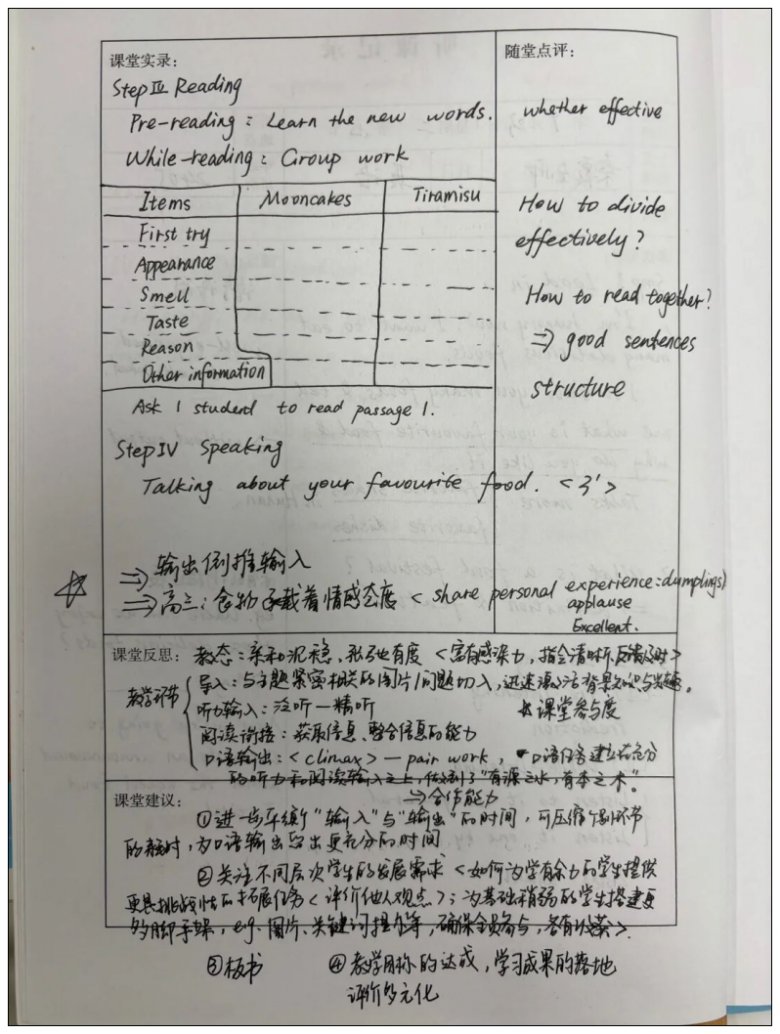 课堂实录:
Step Ⅲ Reading
Pre-reading: Learn the new words.
While-reading: Group work
Items Mooncakes Tiramisu
First try
Appearance
Smell
Taste
Reason
Other information
Ask 1 student to read passage 1.
Step IV Speaking
Talking about your favourite food. <3'>
☆ ⇒ 输出倒推输入
⇒ 高三: 食物承载着情感态度 < share personal experience: dumplings)
applause
Excellent.
随堂点评:
whether effective
How to divide
effectively?
How to read together?
⇒ good sentences
structure
课堂反思: 教态: 亲和沉稳, 张弛有度 <富有感染力, 指令清晰, 反馈及时>
教学环节
导入: 与主题紧密相关的图片/问题切入, 迅速激活背景知识与兴趣。
听力输入: 泛听—精听 ★课堂参与度
阅读衔接: 获取信息、整合信息的能力
口语输出: <climax> — pair work, 口语任务建立在充分
的听力和阅读输入之上, 做到了"有源之水, 有本之木"。
⇒合作能力
课堂建议:
①进一步平衡"输入"与"输出"的时间, 可压缩环节
的耗时, 为口语输出留出更充分的时间
②关注不同层次学生的发展需求 <如何为学有余力的学生提供
更具挑战性的拓展任务 <评价他人观点>; 为基础稍弱的学生搭建更
多脚手架, eg. 图片、关键词提示等, 确保全员参与, 各有收获>.
③板书 ④教学目标的达成, 学习成果的落地
评价多元化